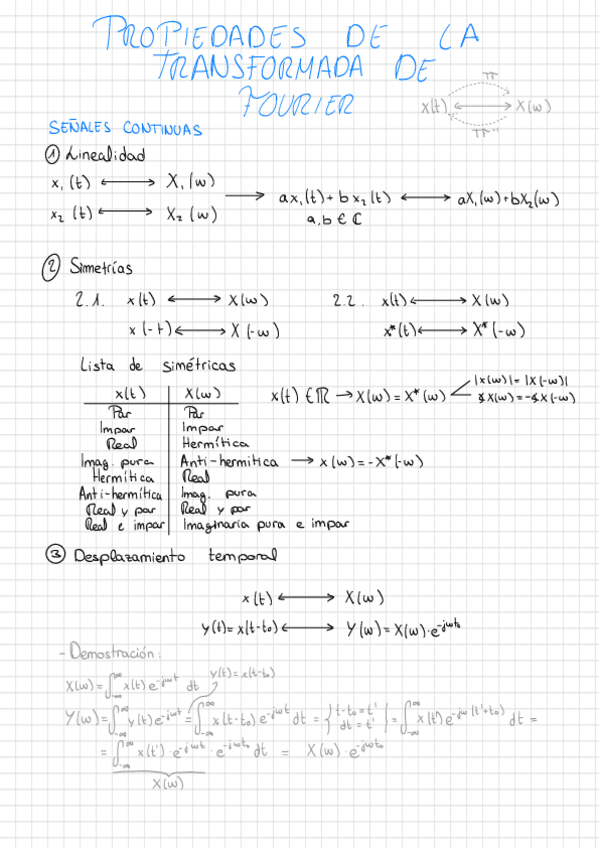 PROPIEDADES DE LA
TRANSFORMADA DE
FOURIER
TF
x(t) ⟷ X(w)
TF⁻¹
SEÑALES CONTINUAS
① Linealidad
x₁(t) ⟷ X₁(w)
x₂(t) ⟷ X₂(w)
⟶ ax₁(t)+bx₂(t) ⟷ aX₁(w)+bX₂(w)
a,b ∈ ℂ
② Simetrías
2.1. x(t) ⟷ X(w)
x(-t) ⟷ X(-w)
2.2. x(t) ⟷ X(w)
x*(t) ⟷ X*(-w)
Lista de simétricas
x(t) | X(w)
Par | Par
Impar | Impar
Real | Hermítica
Imag. pura | Anti-hermitica → x(w)=-X*(-w)
Hermítica | Real
Anti-hermítica | Imag. pura
Real y par | Real y par
Real e impar | Imaginaria pura e impar
x(t) ∈ ℝ → X(w)=X*(w)
|x(w)|=|X(-w)|
∡X(w)=-∡X(-w)
③ Desplazamiento temporal
x(t) ⟷ X(w)
y(t)=x(t-t₀) ⟷ Y(w)=X(w)·e^-jwt₀
- Demostración:
X(w)=∫_-∞^∞ x(t)e^-jwt dt y(t)=x(t-t₀)
Y(w)=∫_-∞^∞ y(t)e^-jwt = ∫_-∞^∞ x(t-t₀)e^-jwt dt = {t-t₀=t' dt=t'} = ∫_-∞^∞ x(t')e^-jw(t'+t₀) dt =
= ∫_-∞^∞ x(t')·e^-jwt·e^-jwt₀ dt = X(w)·e^-jwt₀
X(w)